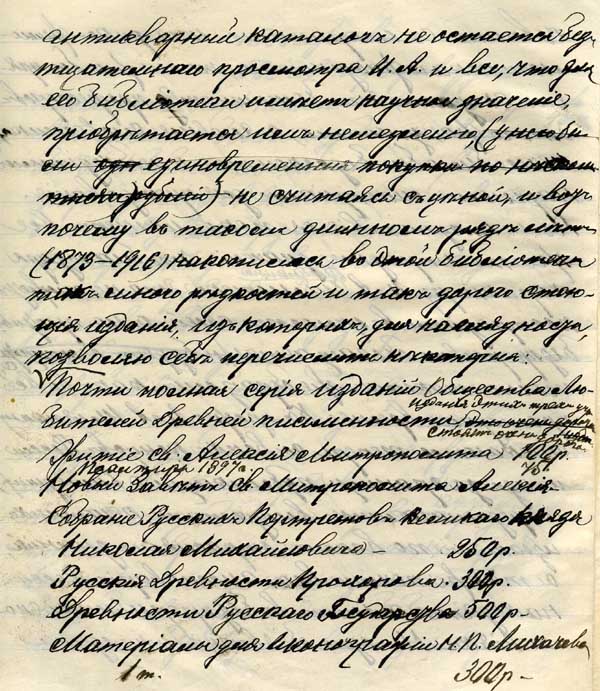 антикварний каталогъ не остается безъ
тщательнаго просмотра И. А. и все, что для
его библіотеки имѣетъ научное значеніе,
пріобрѣтается имъ немедленно,
единовременной покупки по
рублей) не считаясь съ цѣной, и вотъ
почему въ такомъ длинномъ рядѣ лѣтъ
(1873–1916) накопилось въ этой библіотекѣ
такъ много рѣдкостей и такъ дорого стою-
щія изданія, изъ которыхъ для наглядности,
позволяю себѣ перечислить нѣкоторыя:
Почти полная серія изданій Общества Лю-
изданія этихъ
бителей Древней письменности
стоятъ очень
Житіе Св. Алексія Митрополита 100 р.
Псалтирь 1897 г. 75
Новый Завѣтъ Св. Митрополита Алексія
Собраніе Русскихъ Портретовъ Великаго Князя
Николая Михайловича – 250 р.
Русскія Древности Прохорова 300 р.
Древности Русскаго Государства 500 р –
Матеріалы для иконографіи Н. П. Лихачева
1 т. 300 р –